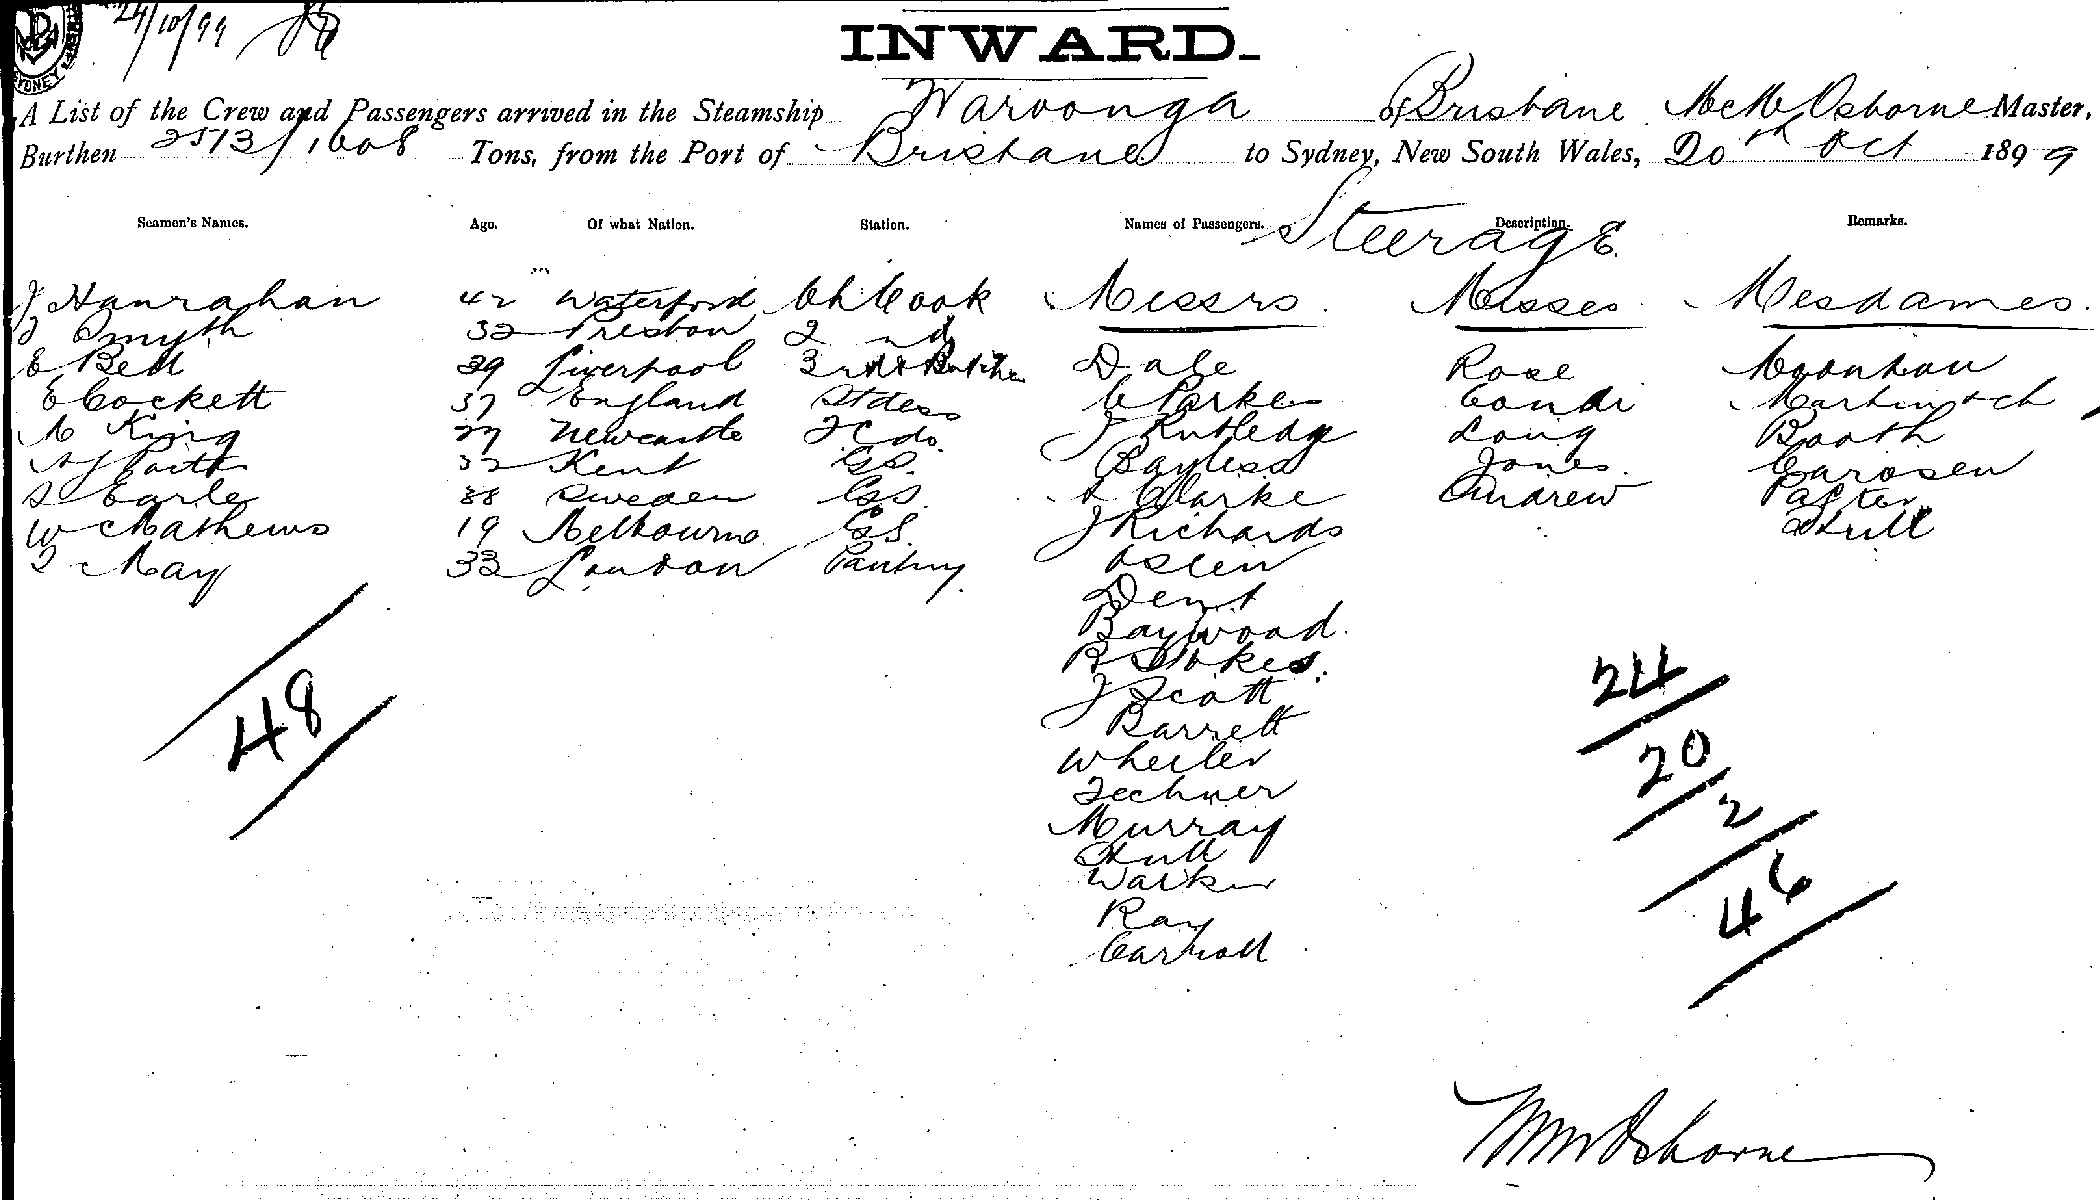 24/10/99
SYDNEY
INWARD.
A List of the Crew and Passengers arrived in the Steamship Waroonga of Brisbane McM Osborne Master,
Burthen 2513/1608 Tons, from the Port of Brisbane to Sydney, New South Wales, 20th Oct 1899
Seamen's Names. Age. Of what Nation. Station. Names of Passengers. Description. Remarks.
Steerage
J Hanrahan 42 Waterford Ch Cook Messrs. Misses Mesdames.
J Smyth 32 Preston 2nd Dale Rose
E Bell 29 Liverpool 3rd & Butcher C Parker Condi
E Cockett 37 England Stdess J Rutledge Long Booth
M King 27 Newcastle 2C do. Bayless Jones
32 Kent GS. Clarke Andrew
S Earle 38 Sweden GS. J Richards Hull
W Mathews 19 Melbourne GS.
J May 33 London Pantry
Dent
Baywood.
R Stokes.
J Scott
Barrett
Wheeler
Zechner
Murray
Hull
Walker
Ray
Carroll
48
24
20
2
46
WMcOsborne